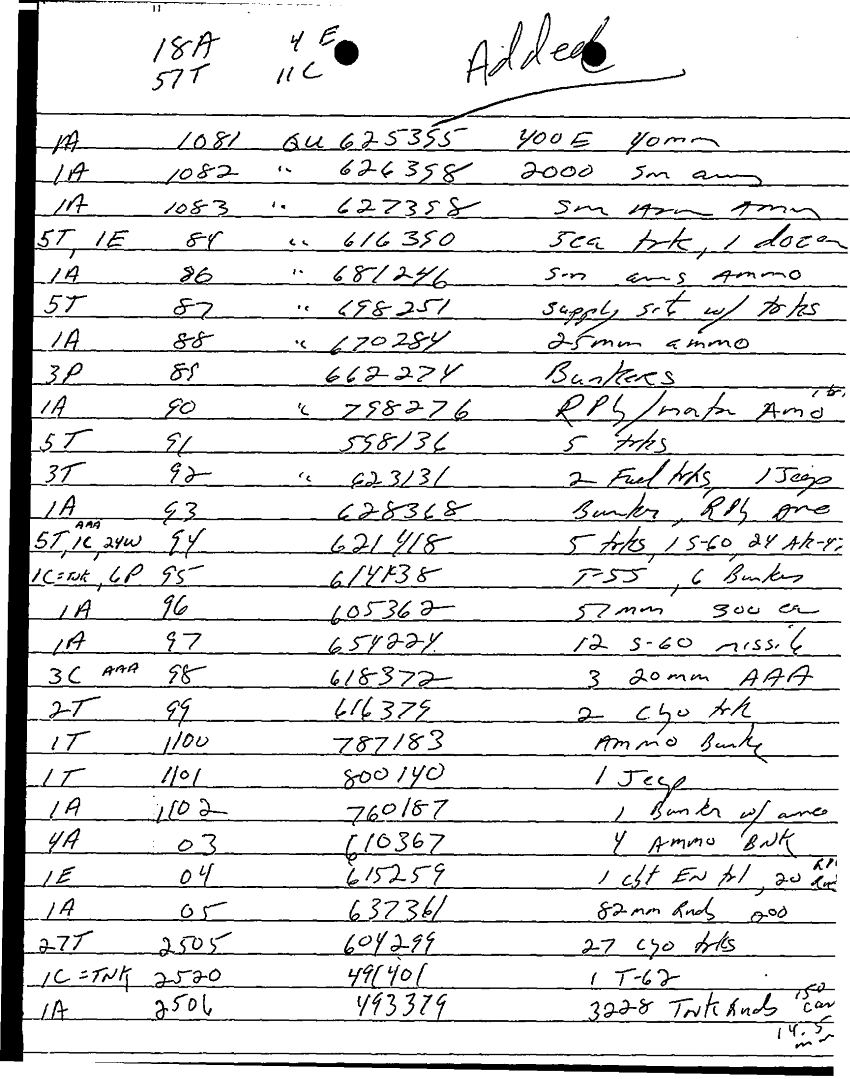 18A 4E Added
57T 11C
1A 1081 QU 625355 400 E 40mm
1A 1082 " 626358 2000 Sm
1A 1083 " 627358 Sm Arm Ammo
5T, 1E 84 " 616350 5ea trk, 1 dozer
1A 86 " 681246 sm ams Ammo
5T 87 " 698251 supply sit w/ trks
1A 88 " 670284 25mm ammo
3P 89 662274 Bunkers
1A 90 " 798276 RPG/ Amo
5T 91 598136 5 trks
3T 92 " 623131 2 Fuel trks, 1 Jeep
1A 93 628368 Bunker, RPG
5T, 1C AAA, 24W 94 621418 5 trks, 1 S-60, 24 AK-47
1C=TNK, 6P 95 T-55, 6 Bunkers
1A 96 605362 57mm 300 ea
1A 97 654224 12 S-60
3C AAA 98 618372 3 20mm AAA
2T 99 616379 2 Cgo trk
1T 1100 787183 Ammo Bunke
1T 1101 800140 1 Jeep
1A 1102 760187 1 Bunker w/
4A 03 610367 4 Ammo BNK
1E 04 615259 1 EN trl, 20
1A 05 637361 82mm Rnds 200
27T 2505 604299 27 Cgo trks
1C=TNK 2520 491401 1 T-62
1A 2506 493379 3228 Tnk Rnds 150
14.5